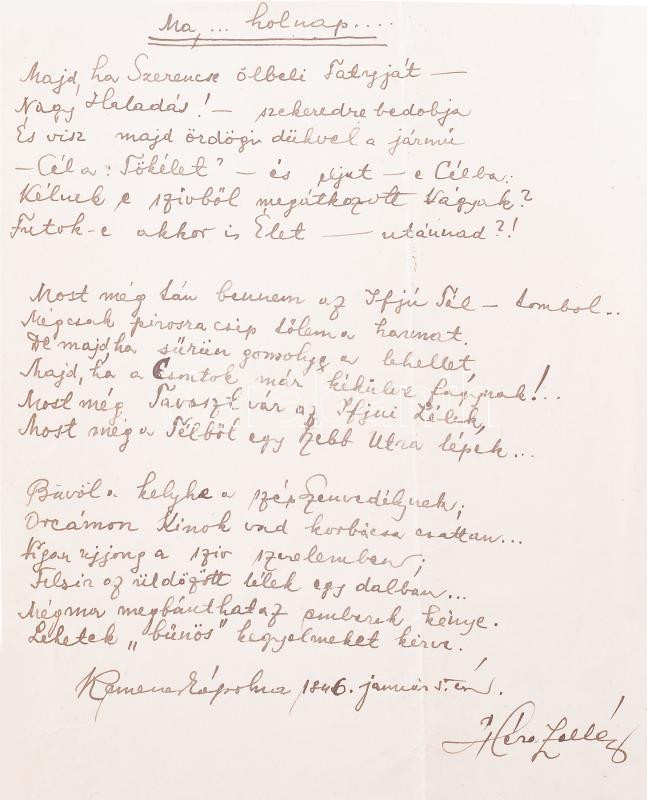 Ma, ... holnap....
Majd, ha Szerencse ölbeli Fattyját —
Nagy Haladás! — szekeredre bedobja
És visz majd ördögi dühvel a jármű
— Cél a: Tökélet" — és eljut — e Célba:
Kélnek e szivből megátkozott Vágyak?
Futok-e akkor is Élet — utánnad?!
Most még tán bennem az Ifjú Tél — tombol...
Mégcsak pirosra csip tőlem a harmat.
De majd ha sűrün gomolyg a lehellet
Majd, ha a Csontok már kékülve fagynak!...
Most még Tavaszt vár az Ifjui Lélek,
Most még a Télből egy szebb Utra lépek...
Bűvöl a kelyhe a szép Szenvedélynek;
Orcámon Kinok vad korbácsa csattan...
Vigan ujjong a sziv szerelemben;
Felsir az üldözött lélek egy dalban...
Mégma megbánthat az emberek kénye.
Lehetek „bűnös" kegyelmeket kérve.
Kemeneskápolna 1946. január 5.-én.